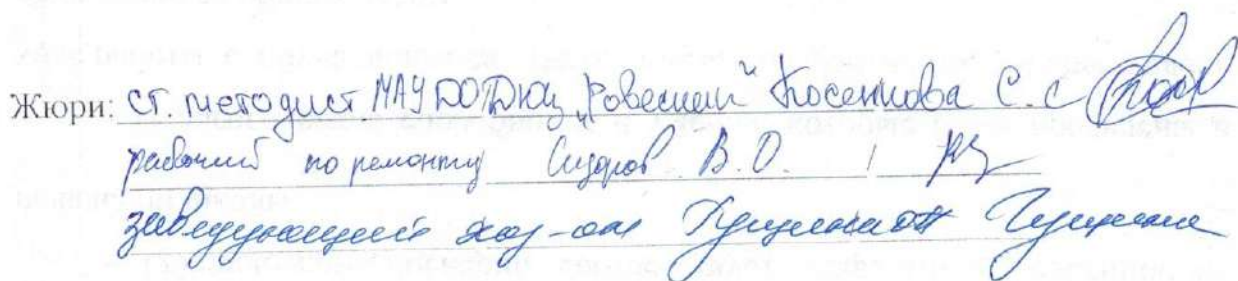 Жюри: ст. методист МАУДО ДЮЦ „Ровесник“ Косенкова С. С
рабочий по ремонту Сидоров В.О. /
заведующий хоз-ом